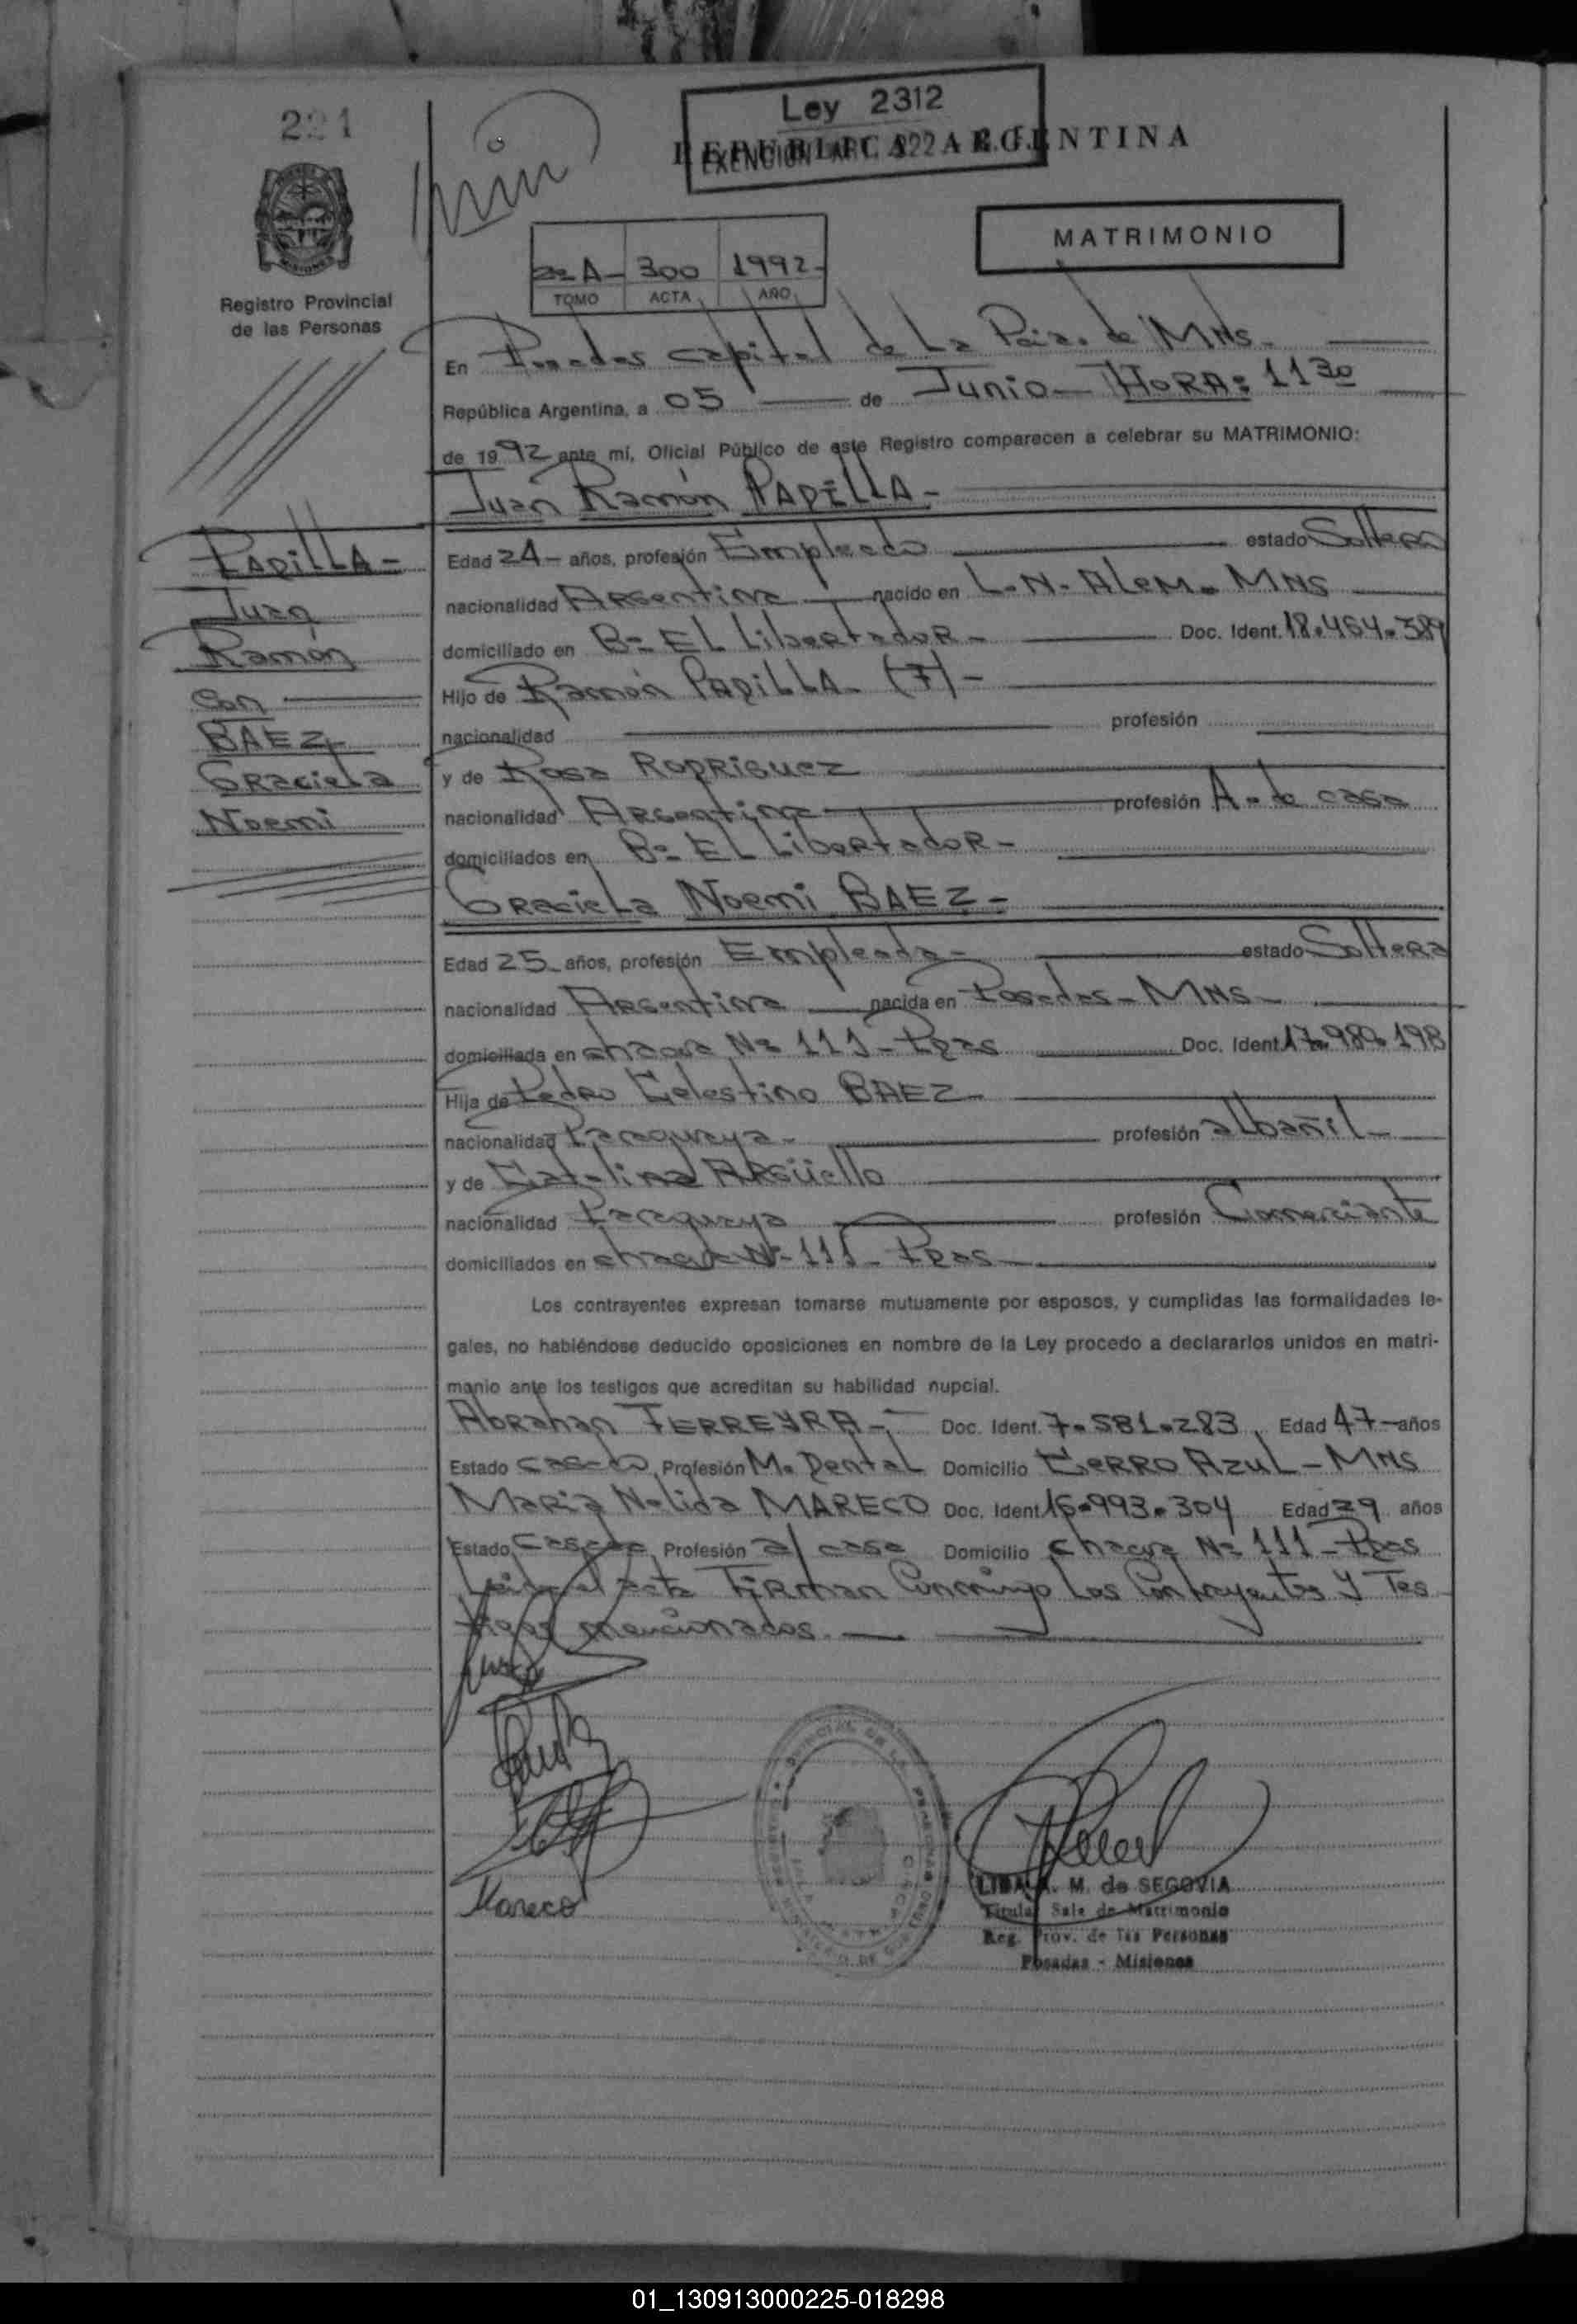 221
Ley 2312
EXENCION ART. 322
REPUBLICA ARGENTINA
MATRIMONIO
2º A- 300 1992-
TOMO ACTA AÑO
Registro Provincial
de las Personas
En Posadas capital de La Pcia. de MNS.
República Argentina, a 05 de Junio - HORA: 11 30
de 1992 ante mí, Oficial Público de este Registro comparecen a celebrar su MATRIMONIO:
Juan Ramón PADILLA-
PADILLA-
Juan
Ramón
con
BAEZ
Graciela
Noemi
Edad 24- años, profesión Empleado estado Soltero
nacionalidad Argentina nacido en L.N. Alem. MNS
domiciliado en Bº EL Libertador- Doc. Ident. 18.464.389
Hijo de Ramón PADILLA- (F)-
nacionalidad profesión
y de Rosa RODRIGUEZ
nacionalidad Argentina profesión A. de casa
domiciliados en Bº EL Libertador-
Graciela Noemi BAEZ-
Edad 25 años, profesión Empleada- estado Soltera
nacionalidad Argentina nacida en Posadas-MNS-
domiciliada en chacra Nº 111-Pdas Doc. Ident. 17.980.198
Hija de Pedro Celestino BAEZ-
nacionalidad Paraguaya- profesión albañil-
y de Catalina ARGüello
nacionalidad Paraguaya profesión Comerciante
domiciliados en chacra Nº 111- Pdas-
Los contrayentes expresan tomarse mutuamente por esposos, y cumplidas las formalidades le-
gales, no habiéndose deducido oposiciones en nombre de la Ley procedo a declararlos unidos en matri-
monio ante los testigos que acreditan su habilidad nupcial.
Abrahan FERREYRA- Doc. Ident. 7.581.283 Edad 47-años
Estado casado Profesión M. Dental Domicilio Cerro Azul-MNS
Maria Nelida MARECO Doc. Ident. 16.993.304 Edad 29 años
Estado Casada Profesión a/ casa Domicilio chacra Nº 111-Pdas
Leida el acta Firman Conmigo Los Contrayentes y Tes
tigos mencionados.
Mareco
M. de SEGOVIA
Titular Sala de Matrimonio
Reg. Prov. de las Personas
Posadas - Misiones
01_130913000225-018298